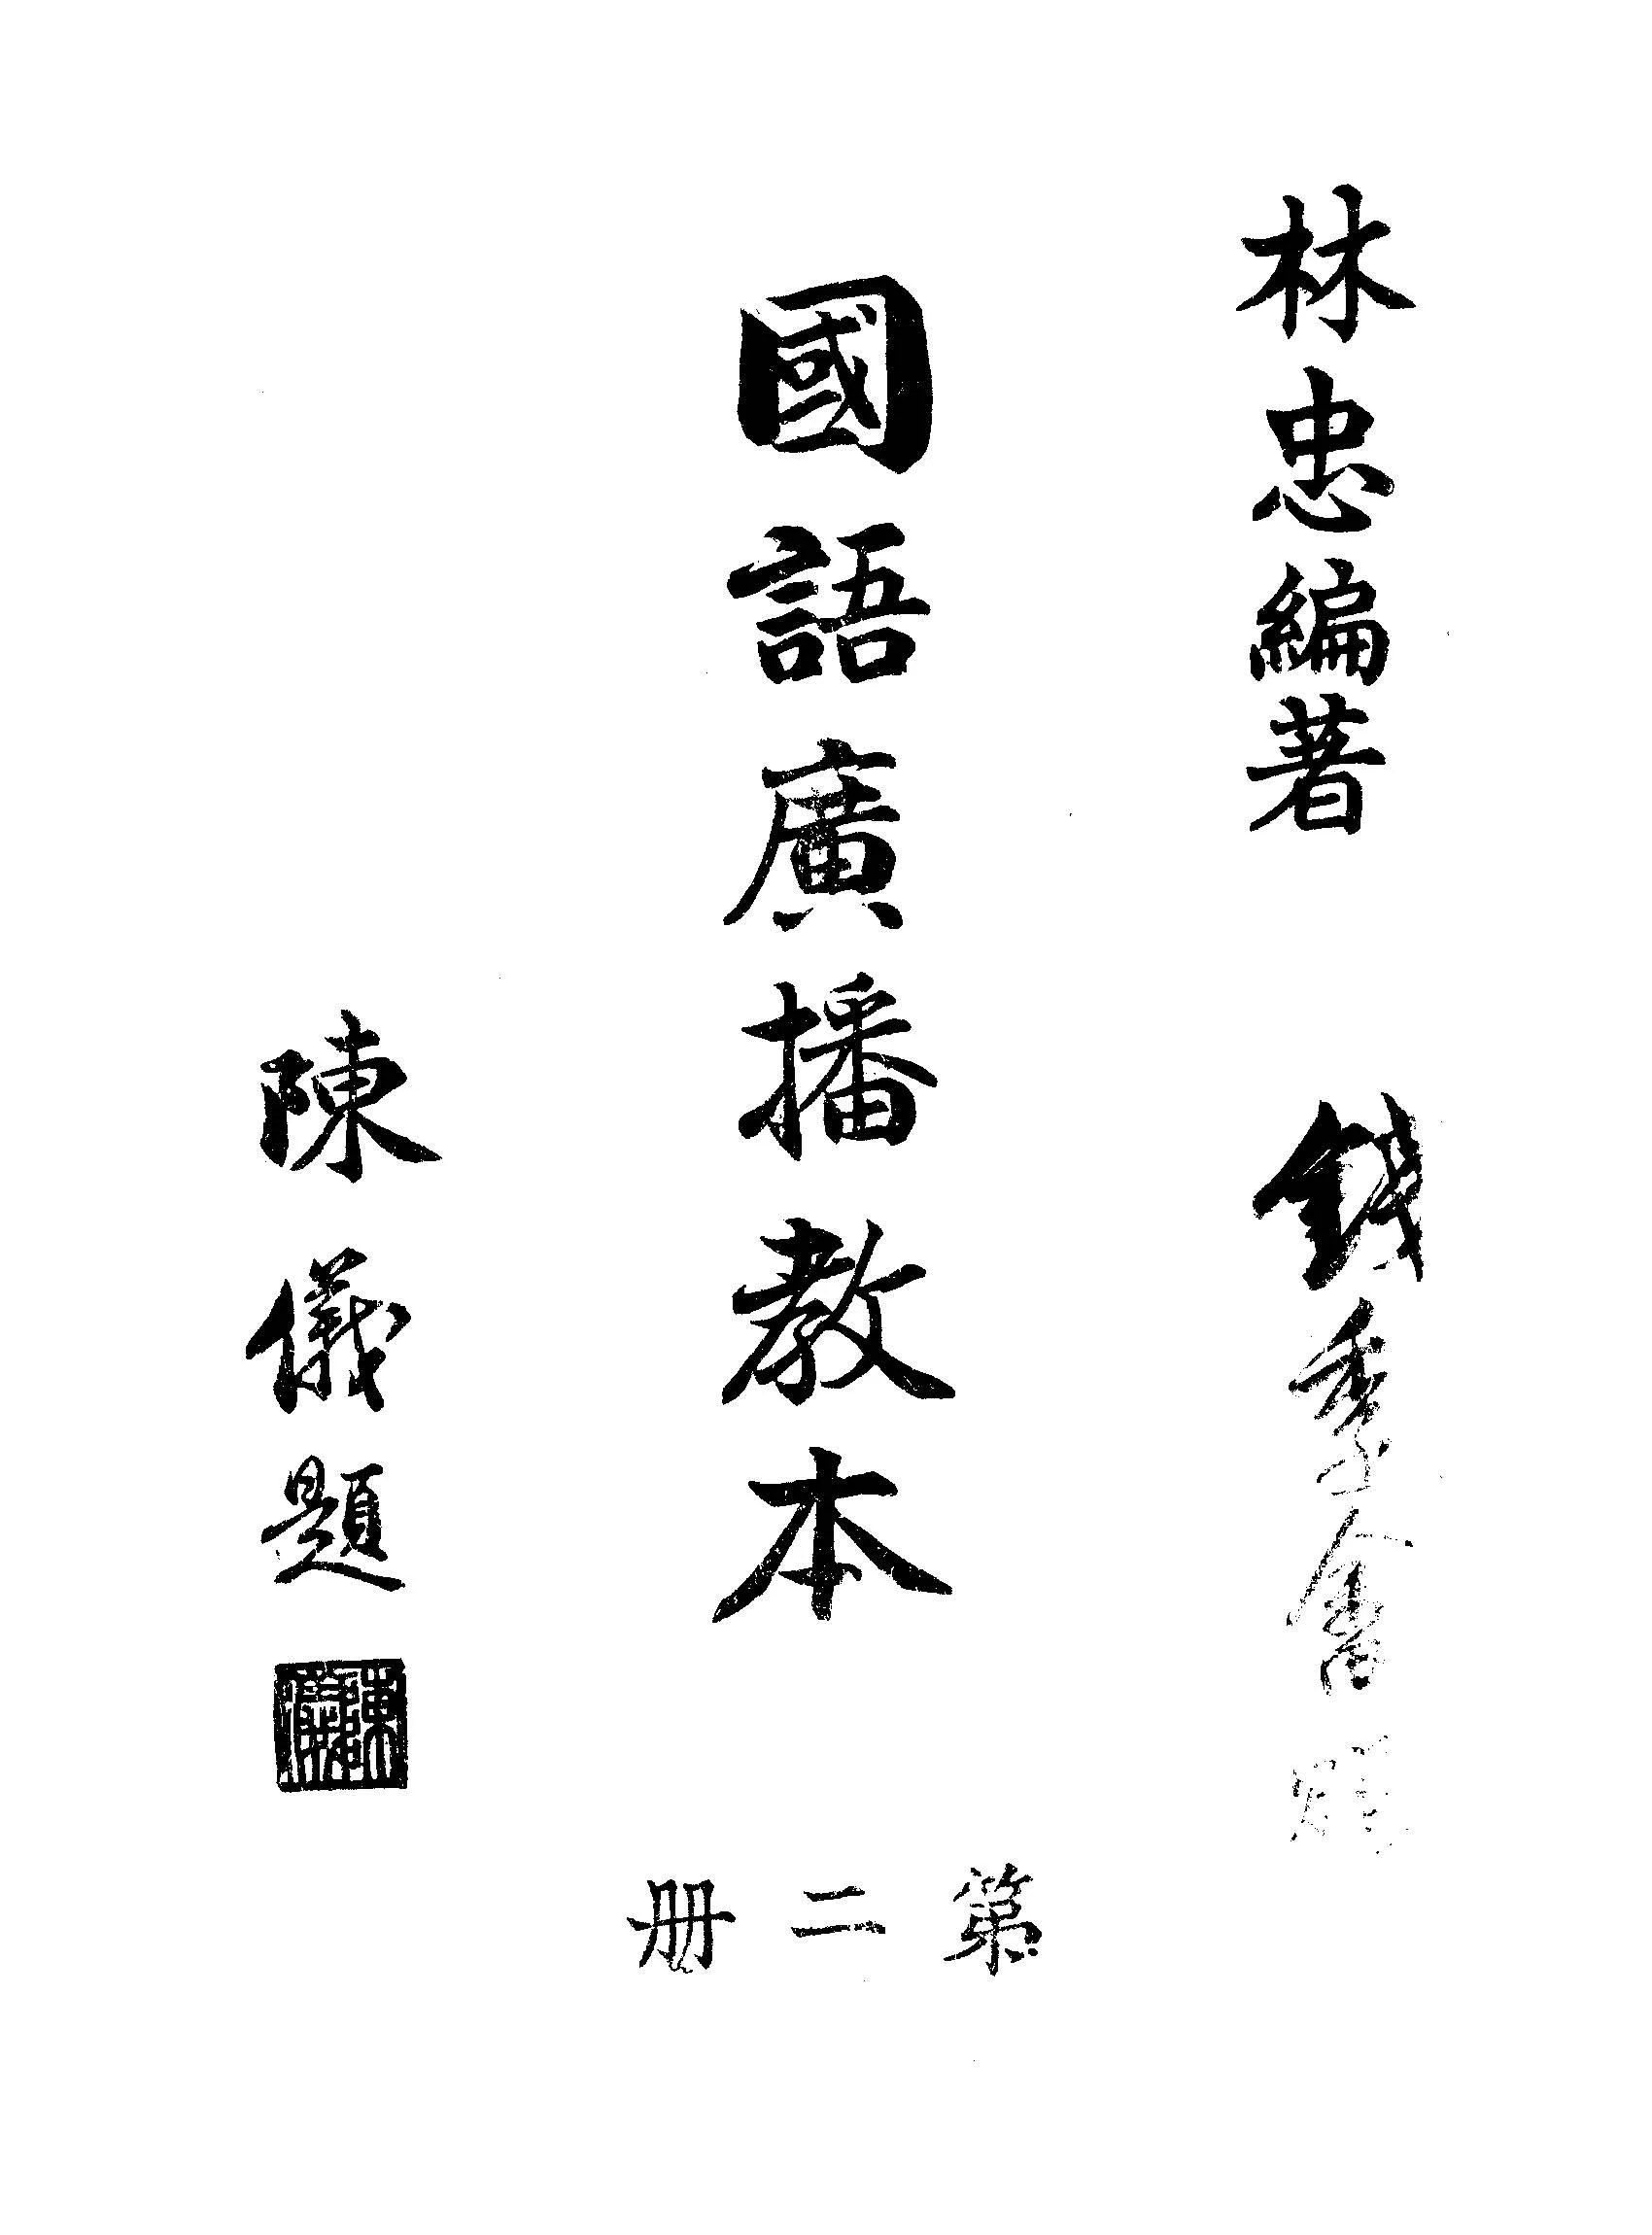 林忠編著
錢季
國語廣播教本
第二册
陳儀題
陳儀